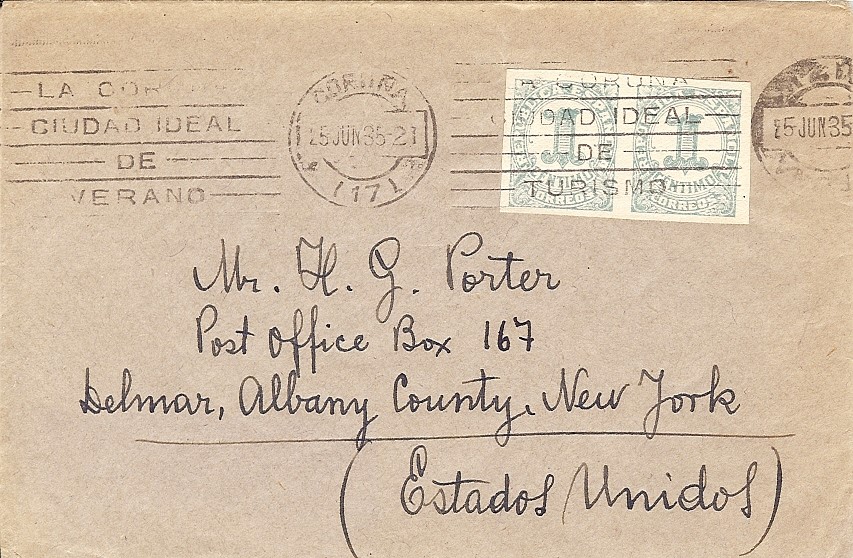 LA COR
CIUDAD IDEAL
DE
VERANO
CORUÑA
25 JUN 35 - 21
(17)
A CORUÑA
CIUDAD IDEAL
DE
TURISMO
1 1
CÉNTIMO CÉNTIMO
CORREOS CORREOS
25 JUN 35
Mr. H. G. Porter
Post Office Box 167
Delmar, Albany County, New York
(Estados Unidos)